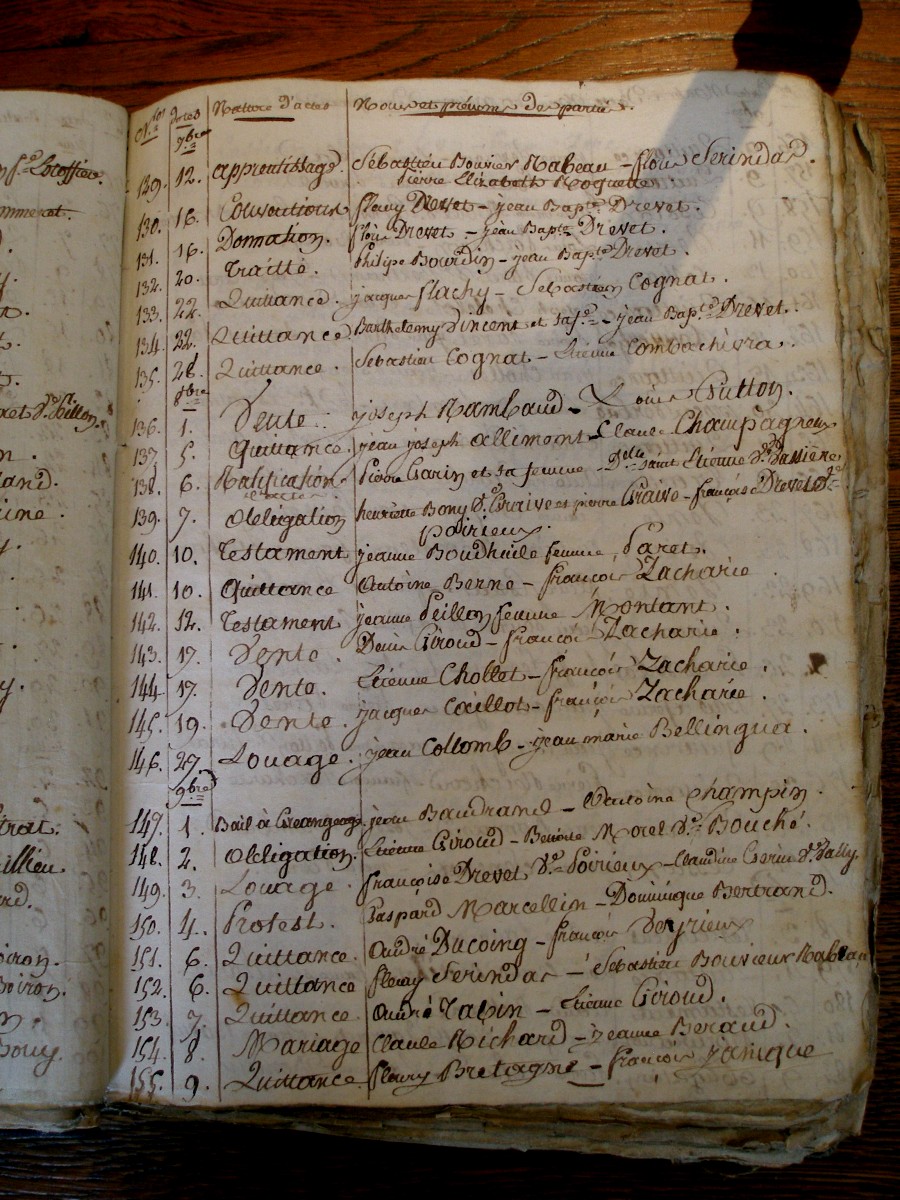 N.os Dates Nature d'actes Noms et prénoms des parties.
7bre
129. 12. apprentissage. Sebastien Bouvier Nabeau – fleurie Serindar.
Pierre Elizabeth Roquette.
130. 16. Conventions fleury Drevet – jean Bapt.te Drevet.
131. 16. Donnation. Drevet – jean Bapt.te Drevet.
132. 20. Traitté. Philipe Bourdin – jean Bapt.te Drevet.
133. 22. Quittance. jacques flachy – Sebastien Cognat.
134. 22. Quittance Barthelemy Vincent et sa f.e – jean Bap.te Drevet.
135. 28. Quittance. Sebastien Cognat – Etienne Combachivra.
8bre
136. 1. Vente. joseph Rambaud – Louis Sutton.
137. 5. Quittance. jean joseph allimont – Claude Champagneux
138. 6. Ratification Pierre Garin et sa femme – D.elle saint Etienne
139. 7. obligation henriette Bony V.e Graive et pierre Graive – françoise Drevet V.e
poirieux.
140. 10. Testament jeanne Boudhuile femme Paret.
141. 10. Quittance Antoine Berne – françois Zacharie
142. 12. Testament jeanne Peillon femme Montant.
143. 17. Vente. Denis Giroud – françois Zacharie.
144. 17. Vente. Etienne Chollet – françois Zacharie.
145. 19. Vente. jacques Coeillot – françois Zacharie.
146. 27. Louage. jean Collomb – jean marie Bellingua.
9bre
147. 1. Bail à jean Baudrand – Antoine Champin.
148. 2. obligation. Etienne Giroud – Benoite Morel V.e Bouché.
149. 3. Louage. françoise Drevet V.e Poirieux – Claudine Gerin V.e Vally.
150. 4. Protest. Gaspard Marcellin – Dominique Bertrand.
151. 6. Quittance. André Ducoing – françois Veyrieux
152. 6. Quittance fleury Serindar – Sebastien Bouvieux Nabeau
153. 7. Quittance. André Tapin – Etienne Giroud.
154. 8. Mariage Claude Richard – jeanne Beraud.
155. 9. Quittance fleury Bretagne – françois janique